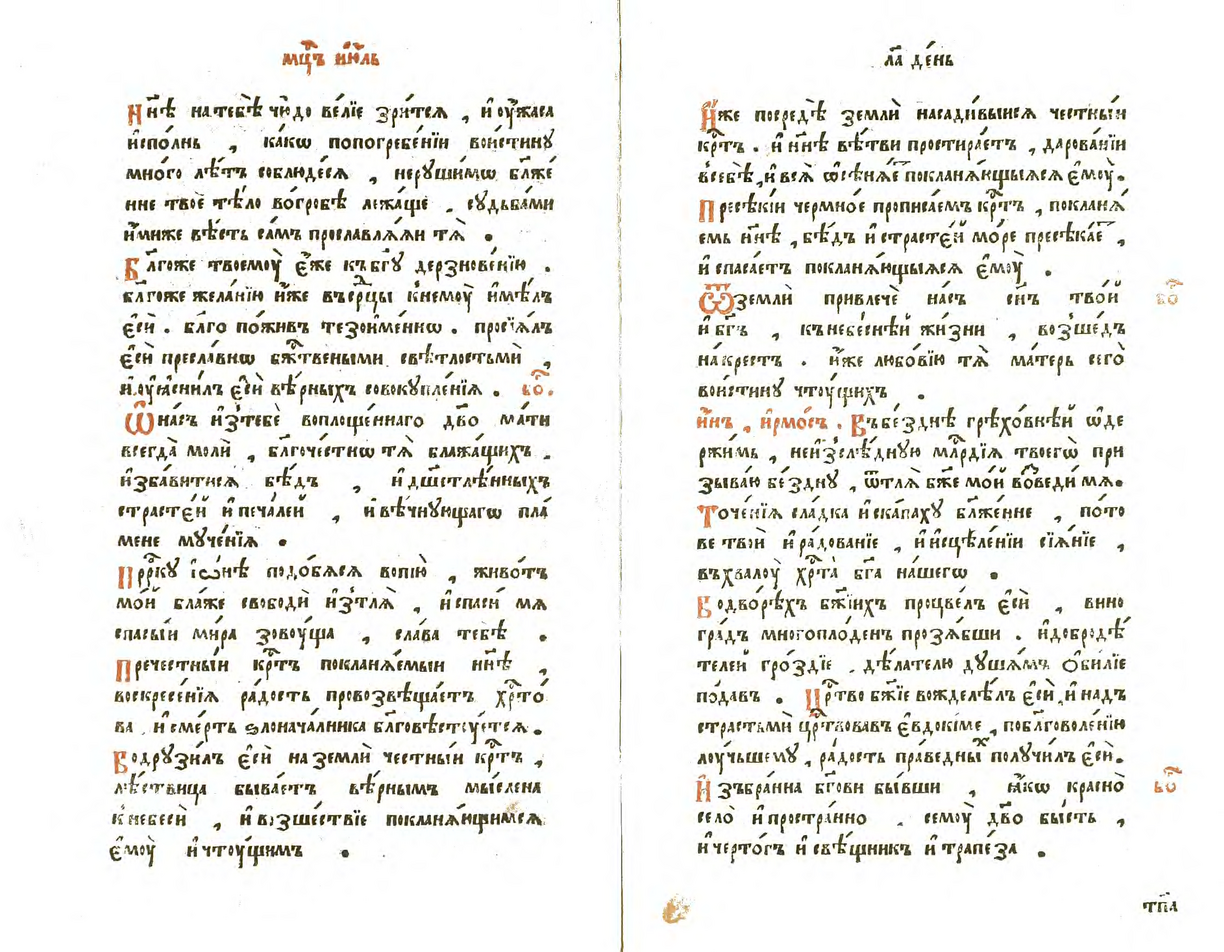 мц҃ъ ию́ль
Нн҃ѣ на тебѣ̀ чю́до ве́лїе зри́тсѧ , и҆ оу҆́жаса
и҆спо́лнь , ка́кѡ по погребе́нїи вои́стинꙋ
мно́го лѣ́тъ соблюде́сѧ , нерꙋши́мѡ бл҃же
нне твоѐ тѣ́ло во гро́бѣ лежа́ще . сꙋдьба́ми
и҆́миже вѣ́сть са́мъ прославлѧ́ѧи тѧ̀ .
Бл҃гоже твоемоу̀ є҆́же къ бг҃ꙋ дерзнове́нїю .
бл҃гоже жела́нїю и҆́же въ се́рдцы к немоу̀ и҆мѣ́лъ
є҆сѝ . бл҃го пожи́въ тезоиме́нно . просїѧ́лъ
є҆сѝ пресла́внѡ бж҃твеными свѣ́тлостьми ,
и҆ оу҆ѧсни́лъ є҆сѝ вѣ́рныхъ совокꙋпле́нїѧ . бо҃.
Ѿ на́съ и҆з тебѐ воплоще́ннаго дв҃о ма́ти
всегда̀ молѝ , бл҃гоче́стнѡ тѧ̀ блажа́щихъ .
и҆зба́витисѧ бѣ́дъ , и҆ дш҃етлѣ́нныхъ
страсте́й и҆ печа́лей , и҆ вѣ́чнꙋющагѡ пла́
мене мꙋче́нїѧ .
Прⷪ҇ркꙋ і҆ѡ́нѣ подо́бѧсѧ вопїю̀ , живо́тъ
мо́й бла́же свободѝ и҆з тлѧ̀ , и҆ спасѝ мѧ
спа́сыи ми́ра зовоу́ща , сла́ва тебѣ̀ .
Пречестны́и крⷭ҇тъ покланѧ́емыи нн҃ѣ ,
воскресе́нїѧ ра́дость провозвѣща́етъ хрⷭ҇то́
ва , и҆ сме́рть ѕлонача́лника бл҃говѣствꙋ́етсѧ.
Водрꙋзи́лъ є҆сѝ на землѝ честны́и крⷭ҇тъ ,
лѣ́ствица быва́етъ вѣ́рнымъ мы́слена
к небесѝ , и҆ возше́ствїе покланѧ́ющимсѧ
є҆моу̀ и҆ чтоу́щимъ .
ла҃ де́нь
И҆́же посредѣ̀ землѝ насади́выисѧ честны́и
крⷭ҇тъ . и҆ нн҃ѣ вѣ́тви простира́етъ , дарова́нїи
в себѣ̀ , и҆ всѧ̀ ѡ҆сѣнѧ́е покланѧ́ющыѧсѧ є҆моу̀.
Пресѣкі́и че́рмное прописа́емъ крⷭ҇тъ , покланѧ́
емь нн҃ѣ , бѣ́дъ и҆ страсте́й мо́ре пресѣка́е ,
и҆ спаса́етъ покланѧ́ющыѧсѧ є҆моу̀ .
Ѿ землѝ привлечѐ на́съ сн҃ъ тво́й бо҃
и҆ бг҃ъ , къ небе́снѣй жи́зни , возше́дъ
на крестъ . и҆́же любо́вїю тѧ̀ ма́терь сегѡ̀
вои́стинꙋ чтоу́щихъ .
и҆́нъ , і҆рмо́съ . Въ бе́зднѣ грѣхо́внѣй ѡ҆де
ржи́мь , неизслѣ́днꙋю млⷭ҇рдїѧ твоегѡ̀ при
зыва́ю бе́зднꙋ , ѿ тлѧ̀ бж҃е мо́й возведи́ мѧ.
Точе́нїѧ сла́дка и҆скапахꙋ бл҃же́нне , по́то
ве твоѝ и҆ ра́дованїе , и҆ и҆сцѣле́нїи сїѧ́нїе ,
въ хвалоу̀ хрⷭ҇та̀ бг҃а на́шегѡ .
Во дво́рѣхъ бж҃їихъ процве́лъ є҆сѝ , вино
гра́дъ многопло́денъ прозѧ́бши . и҆ добродѣ́
телей гро́здїе . дѣ́лателю дꙋша́мъ ѻ҆би́лїе
пода́въ . Црⷭ҇тво бж҃їе вожделѣ́лъ є҆сѝ , и҆ надъ
страстьмѝ црⷭ҇твовавъ є҆вдоки́ме , по бл҃говоле́нїю
лоу́чьшемꙋ , ра́дость пра́ведныⷯ получи́лъ є҆сѝ.
И҆збра́нна бг҃ови бы́вши , ꙗ҆́кѡ красно̀ бо҃
село̀ и҆ простра́нно . семоу̀ дв҃о бы́сть ,
и҆ черто́гъ и҆ свѣ́щникъ и҆ трапе́за .
тп҃а